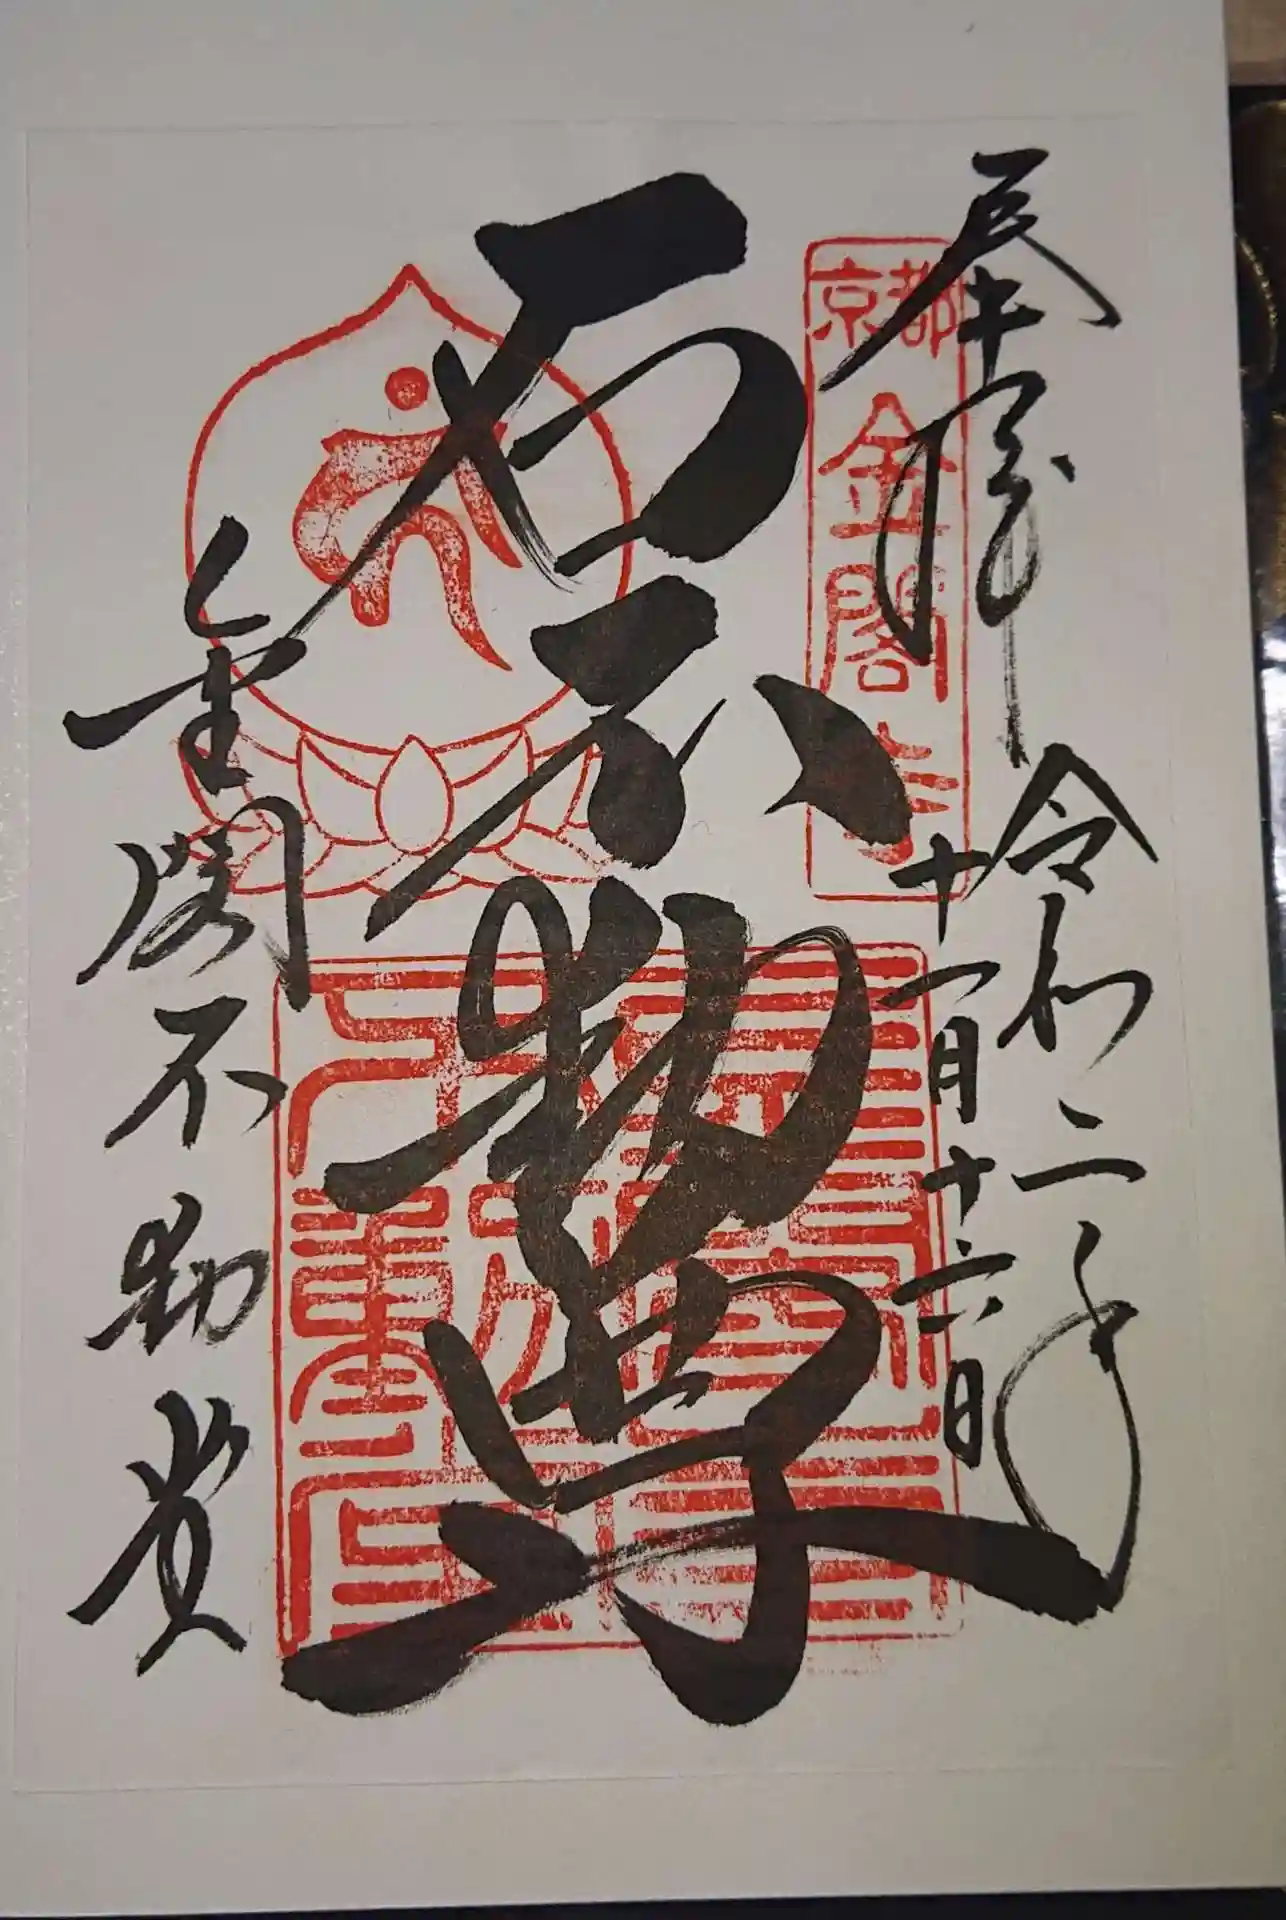 奉拝
令和二年
十一月十六日
京都
金閣寺
石不動尊
金閣不動堂